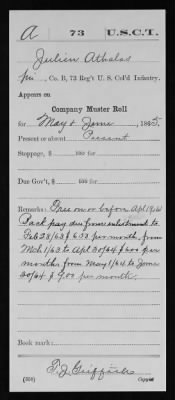 A | 73 | U.S.C.T.
Julien Athalas
Pvt., Co. B, 73 Reg't U. S. Col'd Infantry.
Appears on
Company Muster Roll
for May & June, 1865.
Present or absent Present
Stoppage, $ 100 for
Due Gov't, $ 100 for
Remarks: Free on or before Apl 19/61
Back pay due from enlistment to
Feb 28/63 $ per month from
Mch 1/63 to Apl 30/64 $ 600 per
months from May 1/64 to June
30/64 $ 9.00 per month.
Book mark:
(358)
Copyist